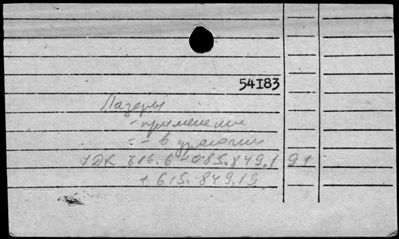 54I83
Лазеры
- применение
- - в урологии
УДК 616.6-085.849.19+
+615.849.19